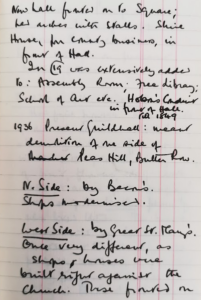 Now hall fronted on to Square;
her arches with stalls. Shire
House, for county business, in
front of Hall.
In 19 was extensively added
to: Assembly Room, Free Library,
School of Art etc. Hobson's Conduit
in front of Hall
till 1849
1936 Present Guildhall: meant
demolition of one side of
Peas Hill, Butter Row.
N. Side: by Bacon's.
Shops modernised.
West Side: by Great St. Mary's.
Once very different, as
shops, houses were
built right against the
Church. These fronted on